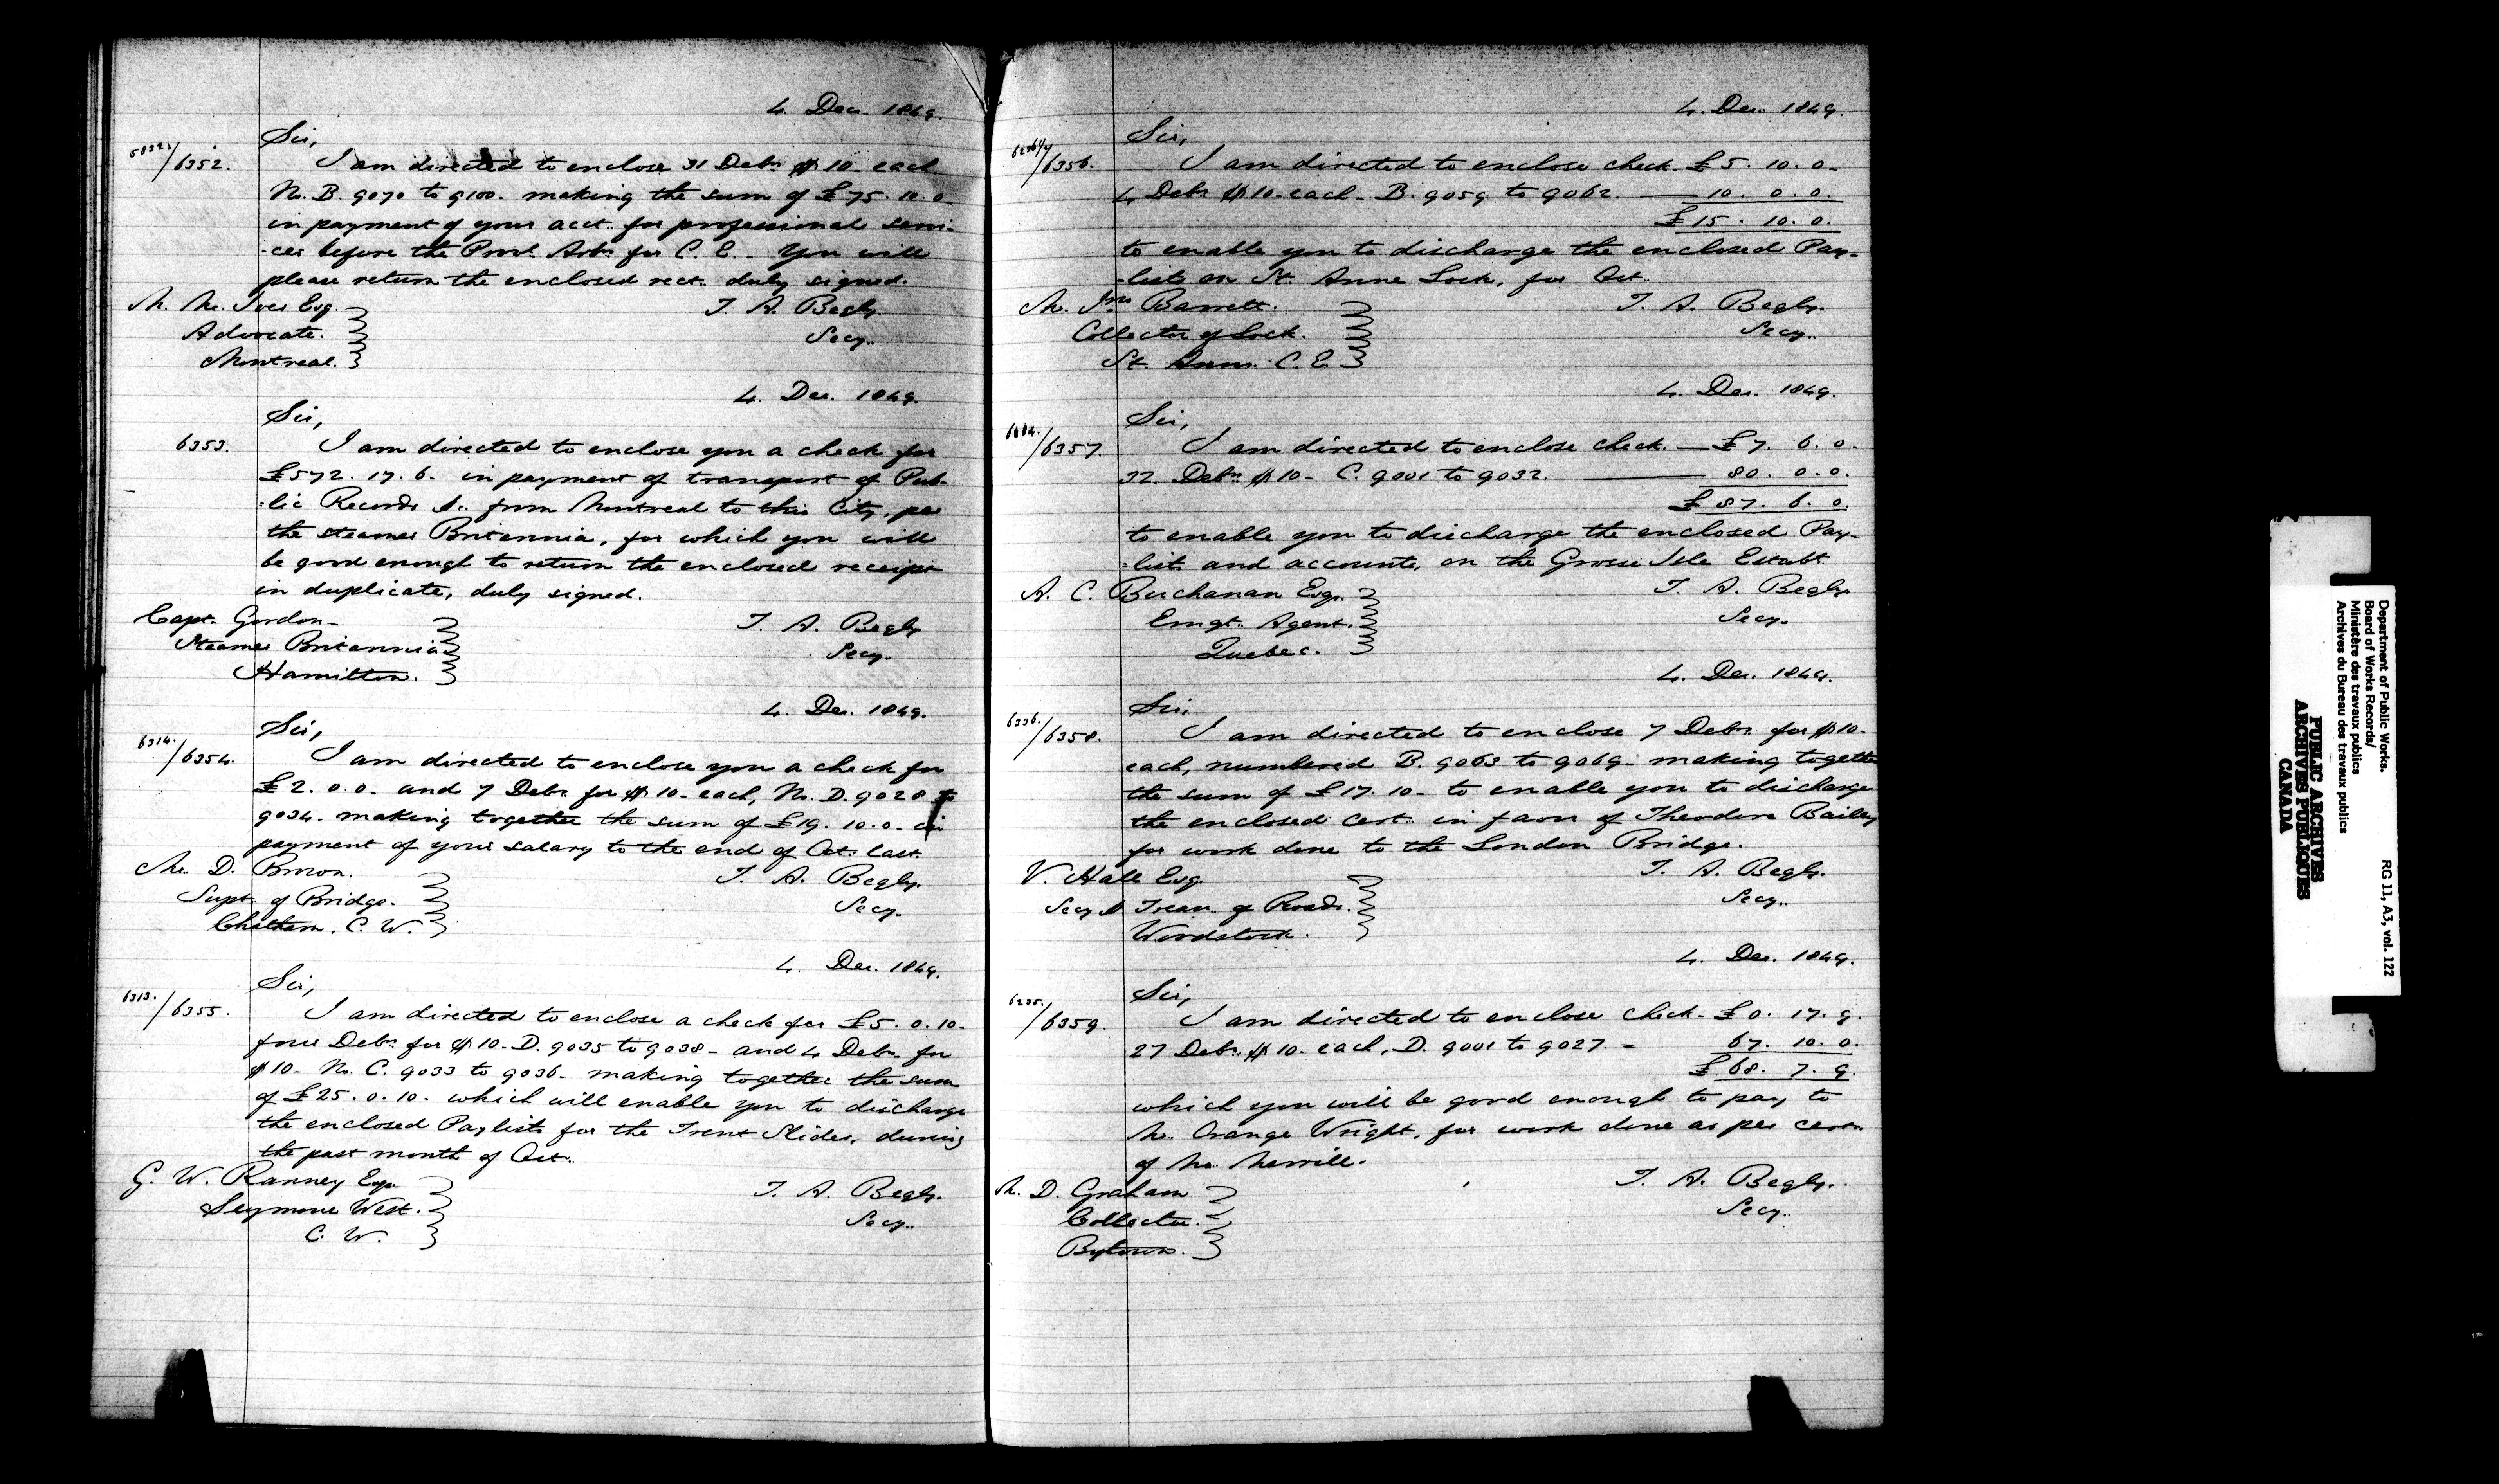 4. Dec. 1849.
Sir,
5832./6352. I am directed to enclose 31 Debs. $10- each
No. B. 9070 to 9100- making the sum of £75.10.0-
in payment of your acct. for professional servi-
-ces before the Provl. Arbs. for C. E.- You will
please return the enclosed rect. duly signed.
M. Mc. Ives Esq. T. A. Begly.
Advocate. Secy.
Montreal.
4. Dec. 1849.
Sir,
6353. I am directed to enclose you a check for
£572. 17. 6- in payment of transport of Pub-
-lic Records &c. from Montreal to this City, per
the steamer Britannia, for which you will
be good enough to return the enclosed receipt
in duplicate, duly signed.
Capt. Gordon- T. A. Begly
Steamer Britannia Secy.
Hamilton.
4. Dec. 1849.
Sir,
6314./6354. I am directed to enclose you a check for
£2. 0. 0- and 7 Debs. for $10- each, No. D. 9028 to
9034- making together the sum of £19. 10. 0- in
payment of your salary to the end of Oct. last.
Mr. D. Brown. T. A. Begly.
Supt. of Bridge. Secy.
Chatham, C. W.
4. Dec. 1849.
Sir,
6313./6355. I am directed to enclose a check for £5. 0. 10-
four Debs. for $10- D. 9035 to 9038- and 4 Debs. for
$10- No. C. 9033 to 9036- making together the sum
of £25. 0. 10- which will enable you to discharge
the enclosed Paylists for the Trent Slides, during
the past month of Oct.
G. W. Ranney Esq. T. A. Begly.
Seymour West. Secy.
C. W.
4. Dec. 1849.
Sir,
/6356. I am directed to enclose check- £5. 10. 0-
4 Debs. $10- each- B. 9059 to 9062. — 10. 0. 0.
£15. 10. 0.
to enable you to discharge the enclosed Pay-
-lists on St. Anne Lock, for Oct.
Mr. Jno. Barrett. T. A. Begly.
Collector of Lock. Secy.
St. Anns. C. E.
4. Dec. 1849.
Sir,
/6357. I am directed to enclose check. — £7. 6. 0.
32. Debs. $10- C. 9001 to 9032. — 80. 0. 0.
£87. 6. 0.
to enable you to discharge the enclosed Pay-
-lists and accounts, on the Grosse Isle Establt.
A. C. Buchanan Esq. T. A. Begly.
Emgt. Agent. Secy.
Quebec.
4. Dec. 1849.
Sir,
6336./6358. I am directed to enclose 7 Debs. for $10-
each, numbered B. 9063 to 9069- making together
the sum of £17. 10- to enable you to discharge
the enclosed cert. in favor of Theodore Bailey
for work done to the London Bridge.
V. Hall Esq. T. A. Begly.
Secy & Treas. of Roads. Secy.
Woodstock.
4. Dec. 1849.
Sir,
6235./6359. I am directed to enclose check- £0. 17. 9.
27 Debs. $10. each, D. 9001 to 9027.- 67. 10. 0.
£68. 7. 9.
which you will be good enough to pay to
Mr. Orange Wright, for work done as per certs.
of Mr. Merrill.
Mr. D. Graham T. A. Begly.
Collector. Secy.
Bytown.
Department of Public Works.
Board of Works Records/
Ministère des travaux publics
Archives du Bureau des travaux publics
RG 11, A3, vol. 122
PUBLIC ARCHIVES
ARCHIVES PUBLIQUES
CANADA